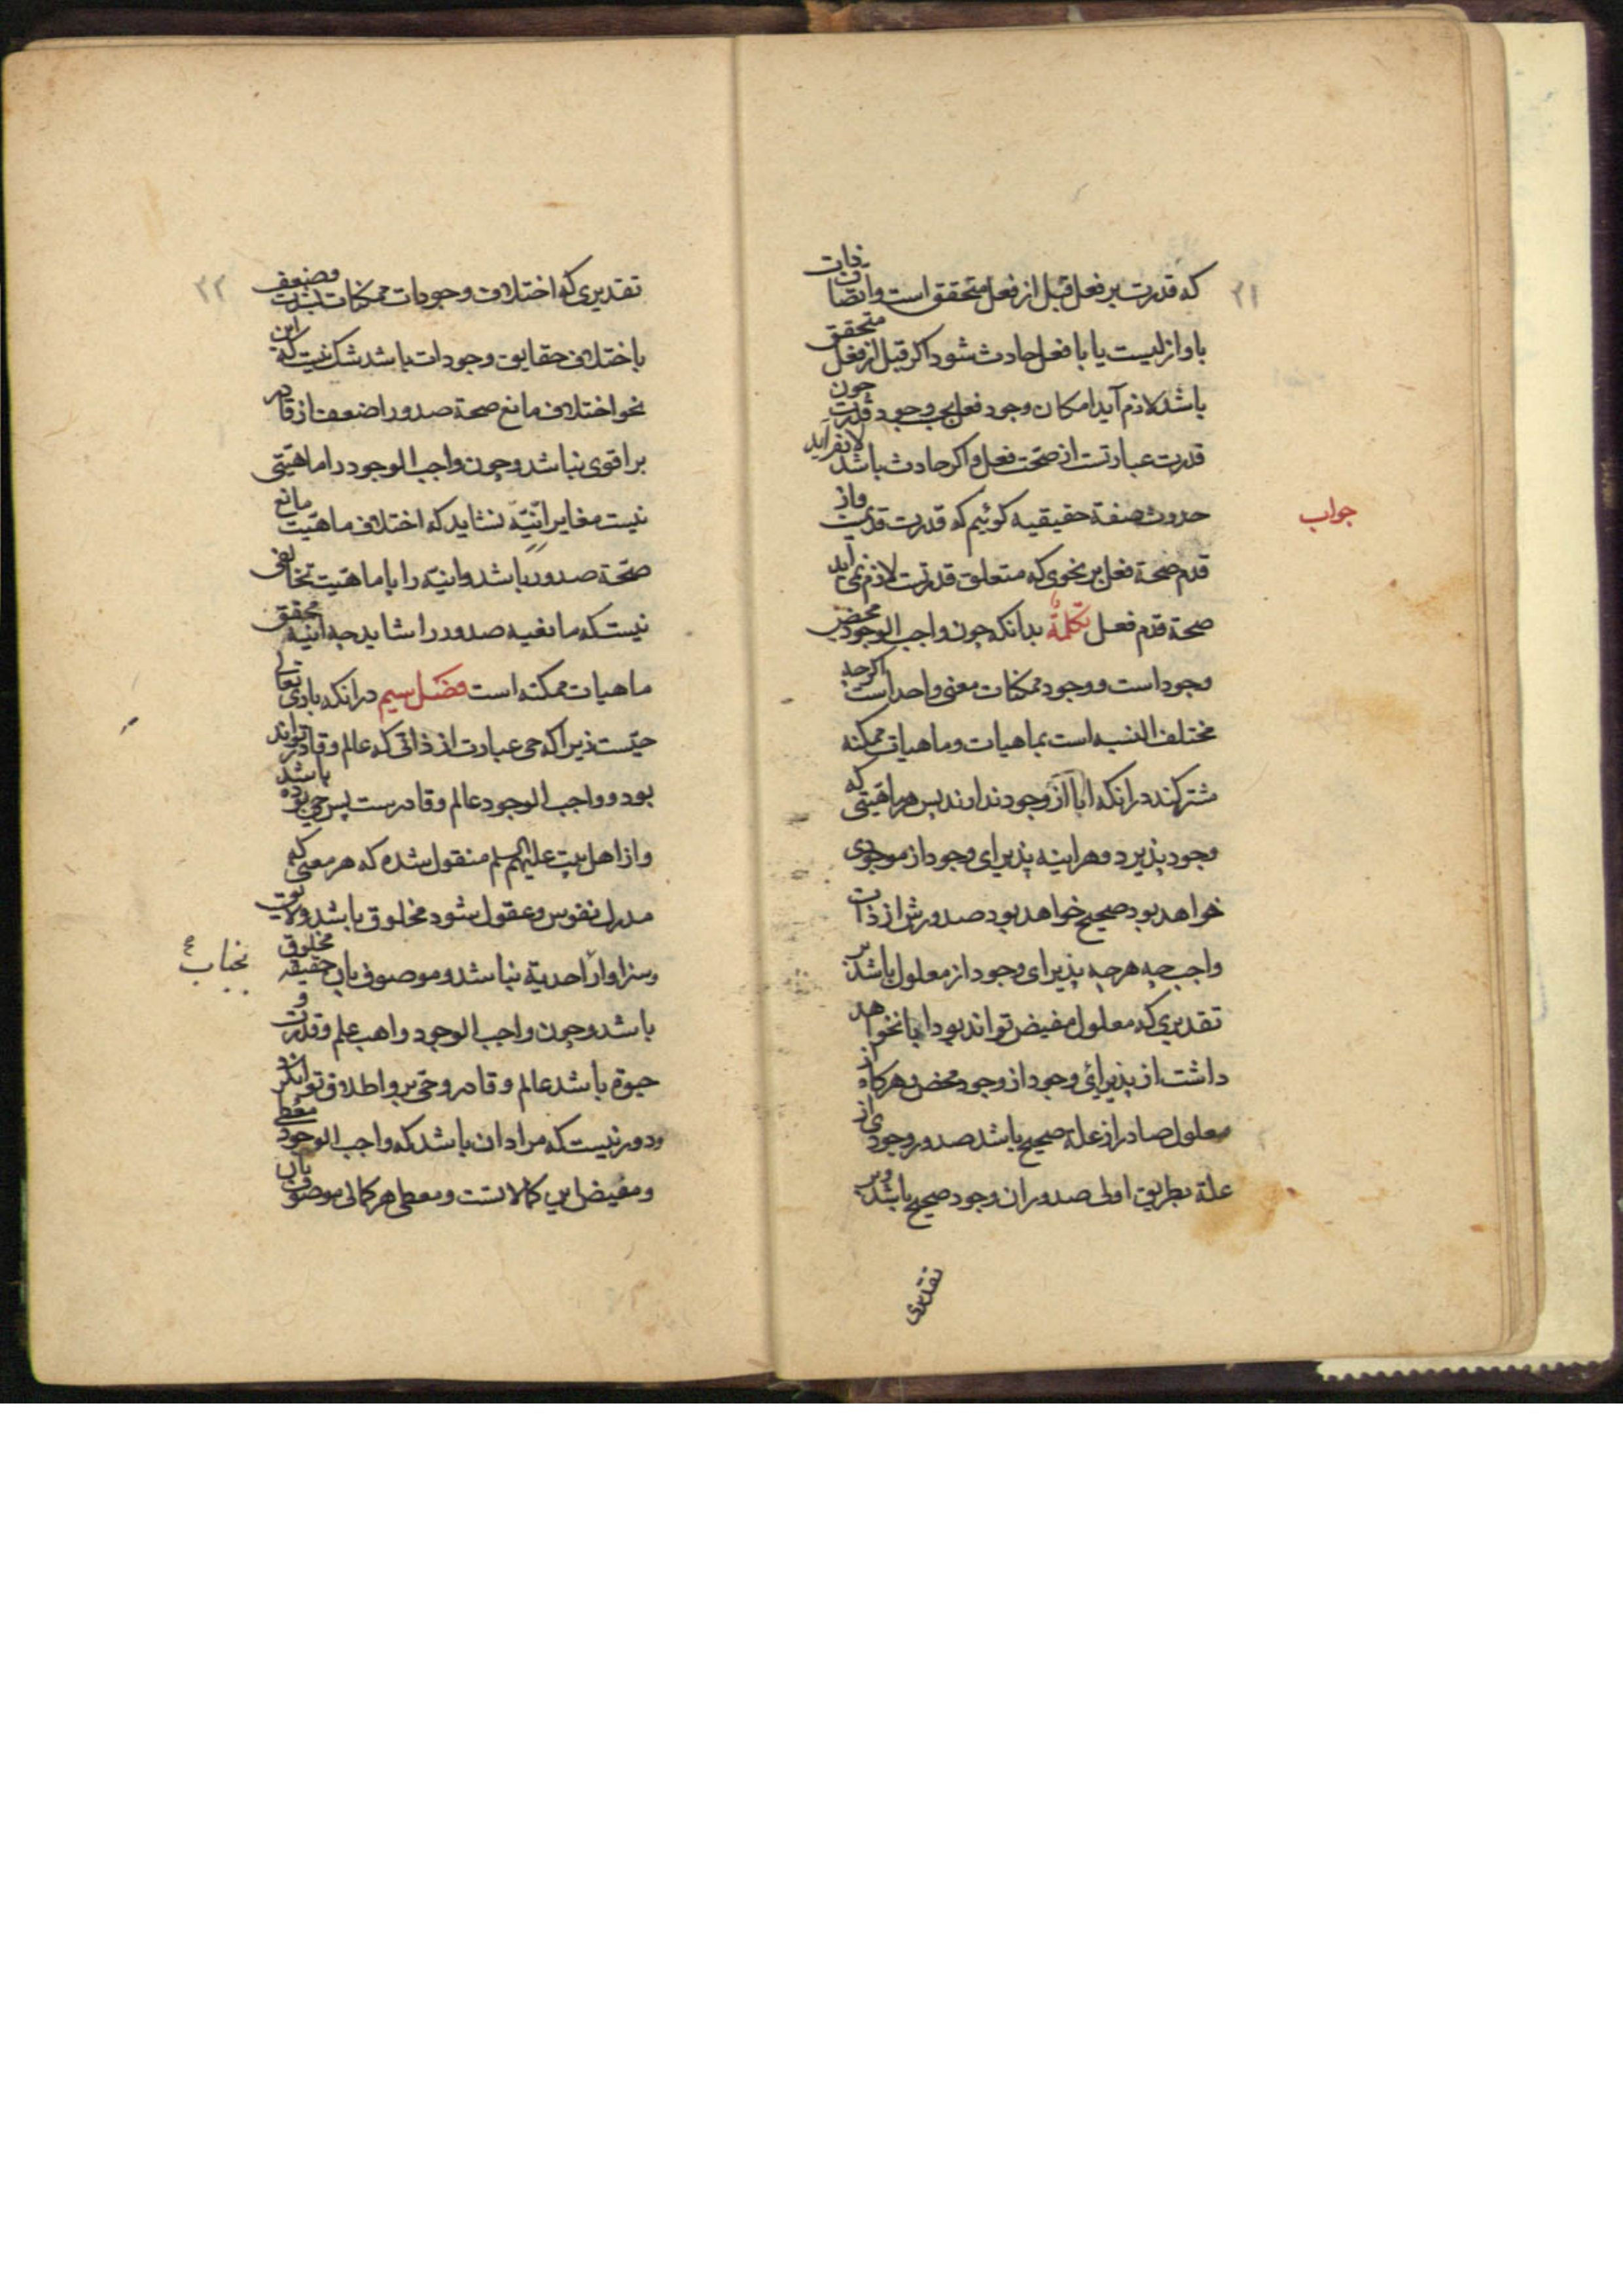 ۲۱
که قدرت بر فعل قبل از فعل متحقق است و اتصاف ذات
باو ازلیست یا با فعل حادث شود اکر قبل از فعل متحقق
باشد لازم آید امکان وجود فعل بوجود قدرت چون
قدرت عبارتست از صحت فعل و اکر حادث باشد لازم آید
حدوث صفة حقیقیه کوئیم که قدرت قدیمست و از
جواب
قدم صحة فعل بر نحوی که متعلق قدرتست لازم نمی آید
صحة قدم فعل تکملة بدانکه چون واجب الوجود محض
وجود است و وجود ممکنات معنی واحد است اکرچه
مختلف النسبه است بماهیات و ماهیات ممکنه
مشترکند در انکه ابا از وجود ندارند پس هر ماهیتی که
وجود پذیرد و هراینه پذیرای وجود از موجودی
خواهد بود صحیح خواهد بود صدورش از ذات
واجب چه هرچه پذیرای وجود از معلول باشد بر
تقدیری که معلول مفیض تواند بود ابا نخواهد
داشت از پذیرائی وجود از وجود محض و هرکاه از
معلول صادر از علة صحیح باشد صدور وجودی از
علة بطریق اولی صدور ان وجود صحیح باشد و بر
تقدیری
۲۲
تقدیری که اختلاف وجودات ممکنات بشدت و ضعف
باختلاف حقایق وجودات باشد شک نیست که این
نحو اختلاف مانع صحة صدور اضعف از قادر
بر اقوی نباشد و چون واجب الوجود را ماهیتی
نیست مغایر انیّة نشاید که اختلاف ماهیت مانع
صحّة صدور باشد و انیّه را با ماهیت تخالفی
نیست که مانعیه صدور را شاید چه انیّه محقق
ماهیات ممکنه است فصل سیم در انکه باری تعالی
حیّست زیرا که حی عبارت از ذاتی که عالم و قادر تواند
بود و واجب الوجود عالم و قادرست پس حی بوده باشد
و از اهل بیت علیهم السلم منقول شده که هر معنی که
مدرک نفوس و عقول شود مخلوق باشد و لایق
و سزاوار احدیة نباشد و موصوف بان حقیقه مخلوق
بجناب
باشد و چون واجب الوجود واهب علم و قدرت و
حیوة باشد عالم و قادر و حی برو اطلاق توان کرد
و دور نیست که مراد ان باشد که واجب الوجود معطی
و مفیض این کمالاتست و معطی هر کمالی موصوف بان